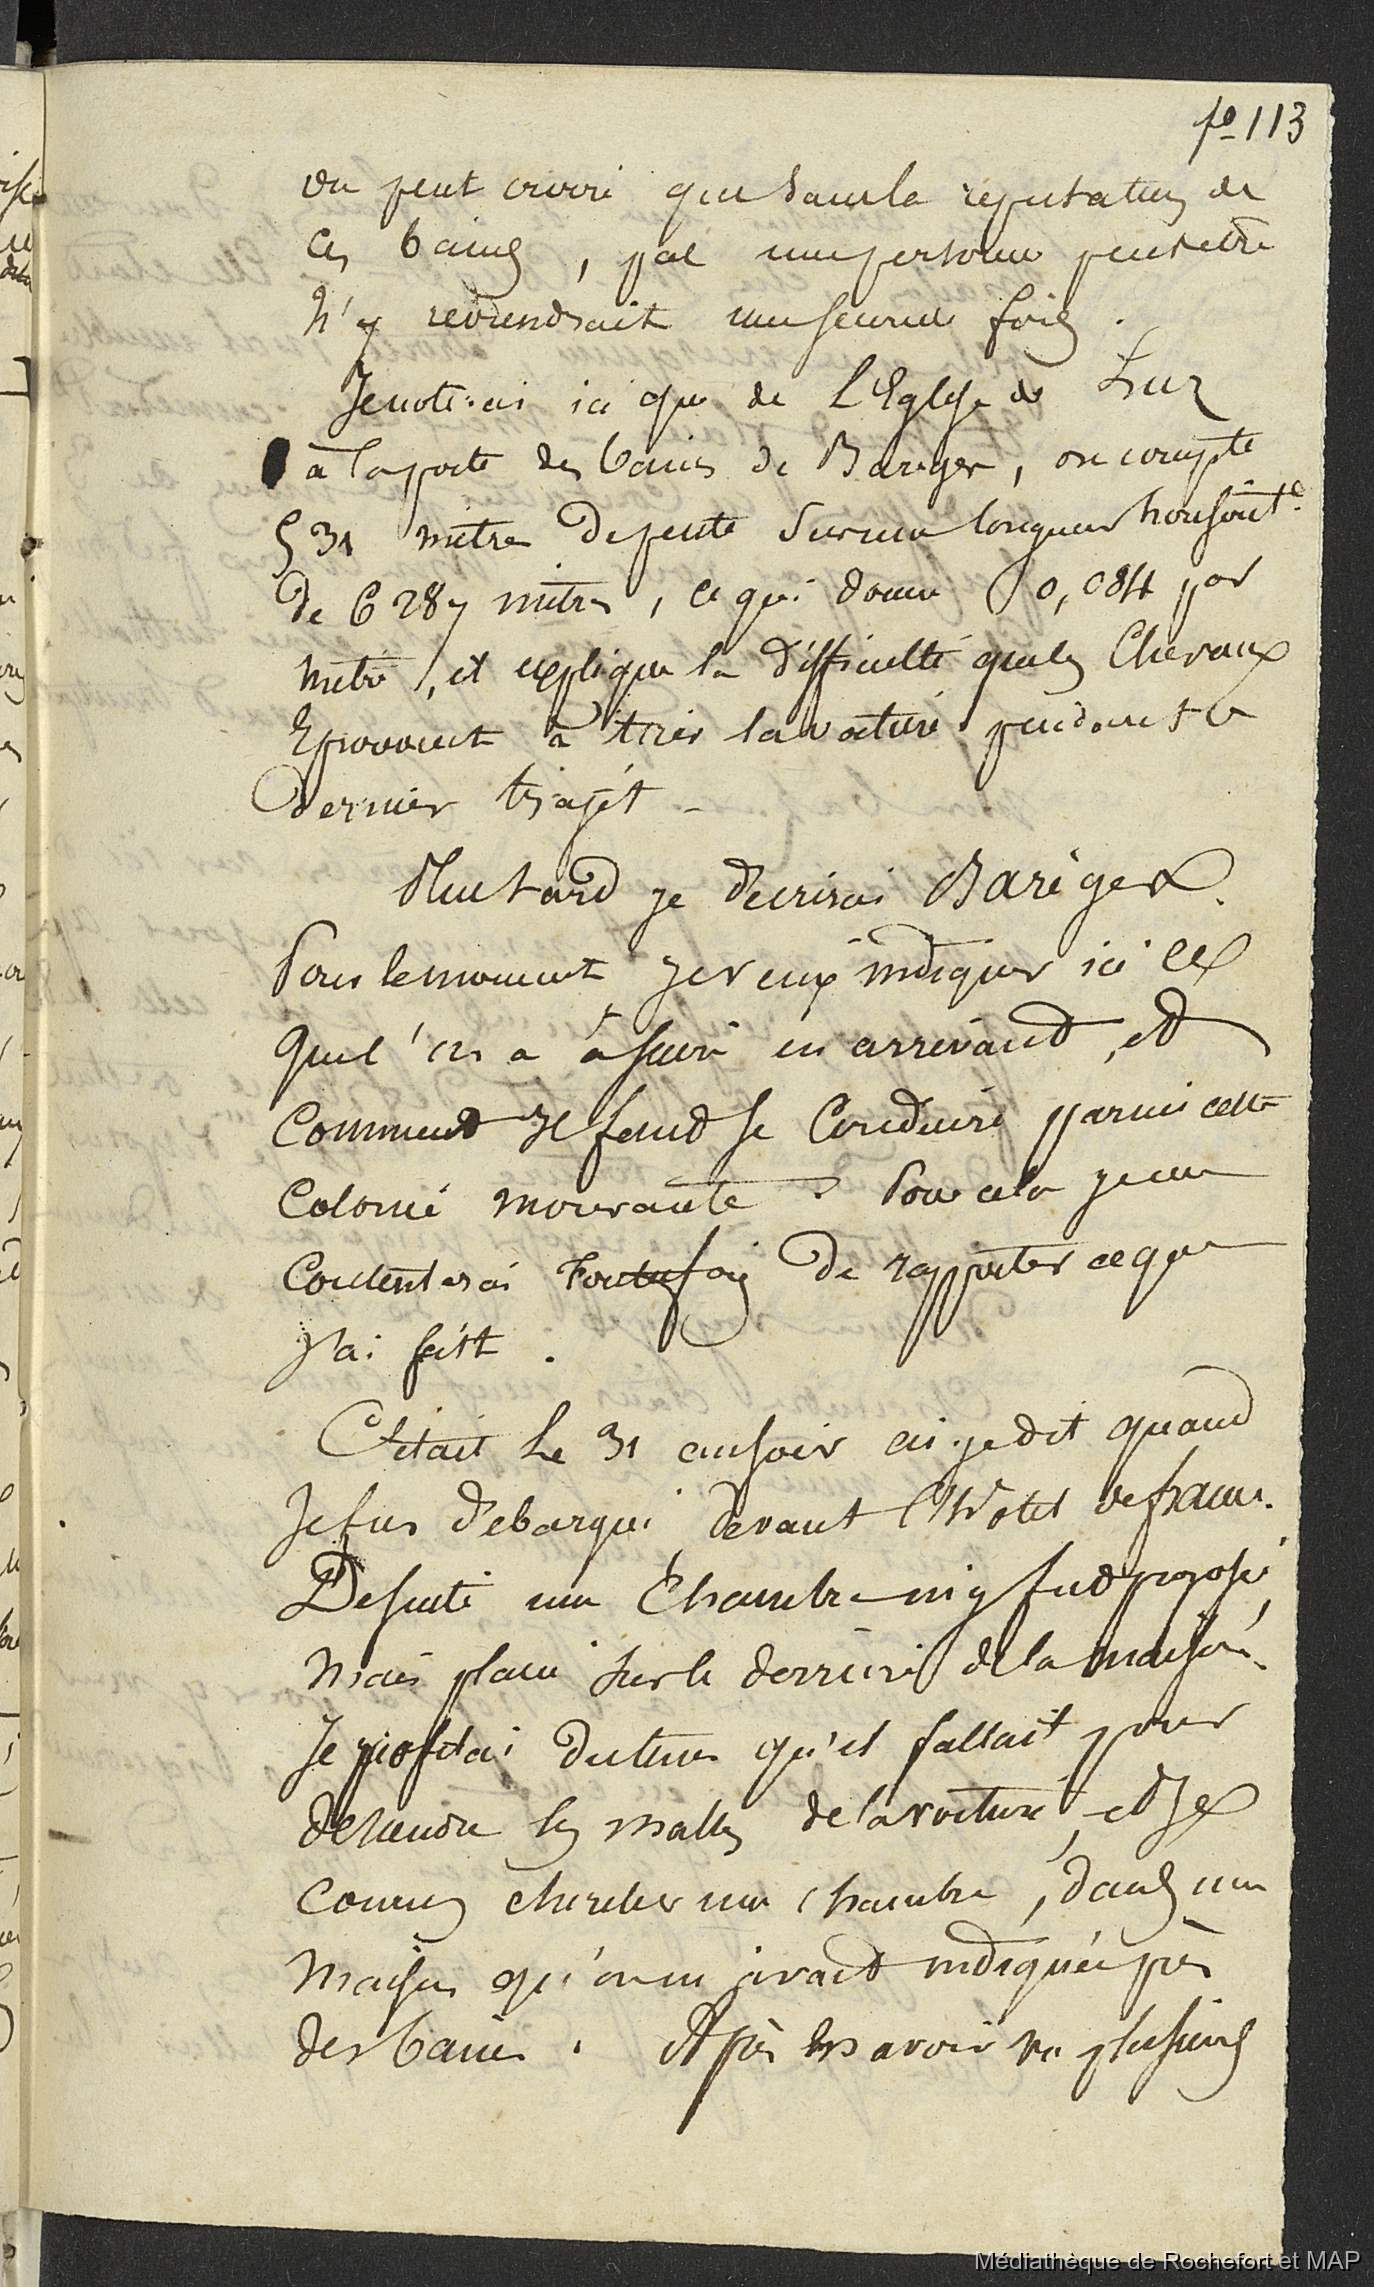 fo 113
on peut croire que sans la reputation de
ces bains, pas une personne peut etre
n'y reviendrait une seconde fois.
Je noterai ici que de l'Eglise de Luz
à la porte des bains de Bareges, on compte
531 mètres de pente sur une longueur horisont.e
de 6287 mètres, ce qui donne 0,084 par
mètre, et explique la difficulté que les Chevaux
Eprouvent à tirer la voiture pendant le
dernier trajet -
Plus tard je décrirai Barèges.
Pour le moment je veux indiquer ici ce
que l'on a à faire en arrivant, et
comment Il faut se Conduire parmi cette
colonie mourante. Pour cela je me
contenterai toutefois de rapporter ce que
j'ai fait.
C'était le 31 au soir ai-je dit quand
Je fus débarqué devant l'hotel de france.
De suite une Chambre m'y fut proposée,
mais placée sur le derrière de la maison.
Je profitai du tems qu'il fallait pour
descendre les malles de la voiture, et Je
courus chercher une chambre, dans une
maison qu'on m'avait indiquée près
des bains. Après en avoir vu plusieurs
Médiathèque de Rochefort et MAP